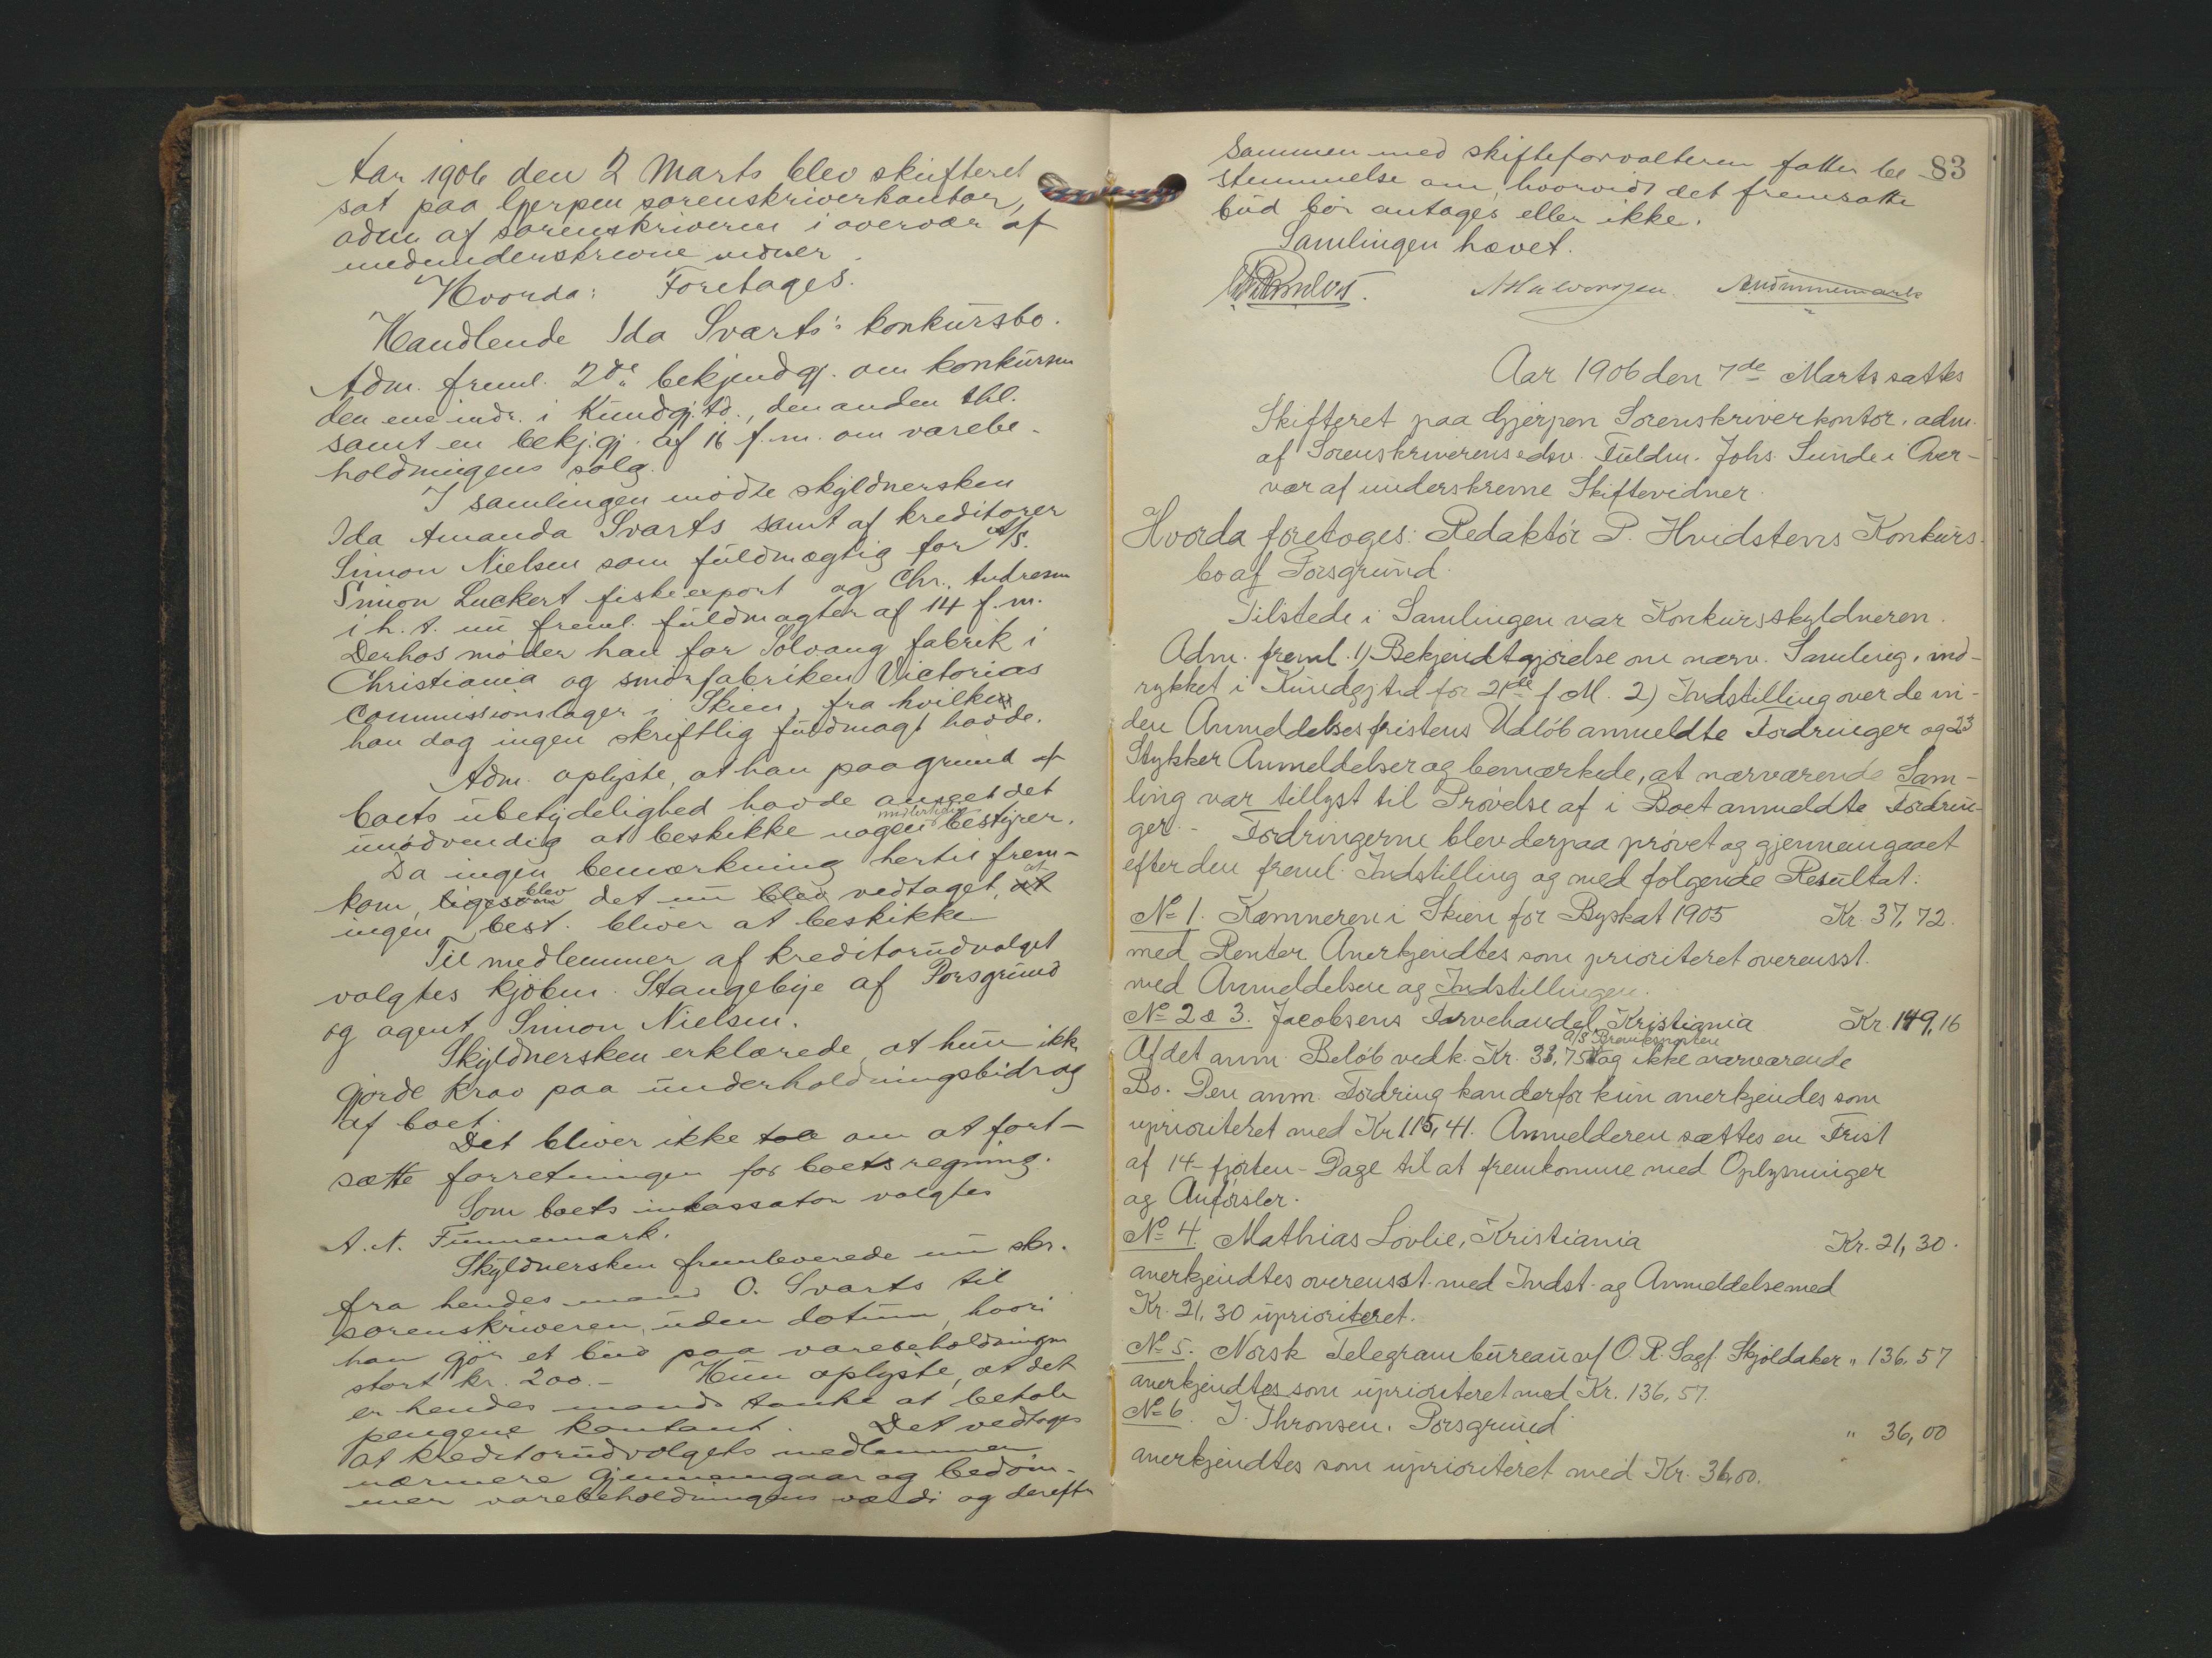 Aar 1906 den 2 Marts blev skifteret
sat paa Gjerpen sorenskriverkontor,
adm af sorenskriveren i overvær af
medunderskrevne vidner.
Hvorda: Foretoges.
Handlende Ida Svarts's konkursbo.
Adm. freml. 2de bekjendtgj. om konkursen
den ene indr. i Kundgj.td., den anden thl.
samt en bekj.gj. af 16 f.m. om varebe-
holdningens salg.
I samlingen mødte skyldnersken
Ida Amanda Svarts samt af kreditorer
Simon Nielsen som fuldmægtig for A/S.
Simon Luckert fiskeexport og Chr. Andresen
i h.t. nu freml. fuldmagter af 14 f.m.
Derhos møder han for Solvang fabrik i
Christiania og smørfabriken Victorias
commissionslager i Skien, fra hvilken
han dog ingen skriftlig fuldmagt havde.
Adm. oplyste, at han paa grund af
boets ubetydelighed havde anseet det
unødvendig at beskikke nogen midlertidig bestyrer.
Da ingen bemærkning hertil frem-
kom, ligesom blev det nu blev vedtaget, at at
ingen best. bliver at beskikke
Til medlemmer af kreditorudvalget
valgtes kjøbm. Stangebye af Porsgrund
og agent Simon Nielsen.
Skyldnersken erklærede, at hun ikke
gjorde krav paa underholdningsbidrag
af boet.
Det bliver ikke tale om at fort-
sætte forretningen for boets regning.
Som boets inkassator valgtes
A. N. Finnemark.
Skyldnersken fremleverede nu skr.
fra hendes mand O. Svarts til
sorenskriveren, uden datum, hvori
han gjør et bud paa varebeholdningen
stort kr. 200.- Hun oplyste, at det
er hendes mands tanke at betale
pengene kontant. Det vedtoges
at kreditorudvalgets medlemmer
nærmere gjennemgaar og bedøm-
mer varebeholdningens værdi og derefter
83
sammen med skifteforvalteren fatter be-
stemmelse om, hvorvidt det fremsatte
bud bør antages eller ikke.
Samlingen hævet.
Aar 1906 den 7de Marts sattes
Skifteret paa Gjerpen Sorenskriverkontor, adm.
af Sorenskriverens edsv. Fuldm. Johs. Sunde i Over-
vær af underskrevne Skiftevidner.
Hvorda foretoges: Redaktør P. Hvidstens Konkurs-
bo af Porsgrund.
Tilstede i Samlingen var Konkursskyldneren.
Adm. freml. 1) Bekjendtgjørelse om nærv. Samling, ind-
rykket i Kundgjtid for 21de f M. 2) Indstilling over de in-
den Anmeldelsesfristens Udløb anmeldte Fordringer og 23
Stykker Anmeldelser og bemærkede, at nærværende Sam-
ling var tillyst til Prøvelse af i Boet anmeldte Fordrin-
ger. - Fordringerne blev derpaa prøvet og gjennemgaaet
efter den freml. Indstilling og med følgende Resultat:
No 1. Kæmneren i Skien for Byskat 1905 Kr. 37,72.
med Renter Anerkjendtes som prioriteret overensst.
med Anmeldelsen og Indstillingen.
No 2 & 3. Jacobsens Farvehandel, Kristiania Kr. 149,16
Af det anm. Beløb vedk. Kr. 33,75 A/S dog ikke nærværende
Bo. Den anm. Fordring kan derfor kun anerkjendes som
uprioriteret med Kr 115,41. Anmelderen sættes en Frist
af 14 - fjorten - Dage til at fremkomme med Oplysninger
og Anførsler.
No 4. Mathias Lovlie, Kristiania Kr. 21,30.
anerkjendtes overensst. med Indst. og Anmeldelse med
Kr. 21,30 uprioriteret.
No 5. Norsk Telegrambureau v/ O. R. Sagf. Skjoldaker " 136,57
anerkjendtes som uprioriteret med Kr. 136,57.
No 6. J. Thronsen, Porsgrund " 36,00
anerkjendtes som uprioriteret med Kr. 36,00.